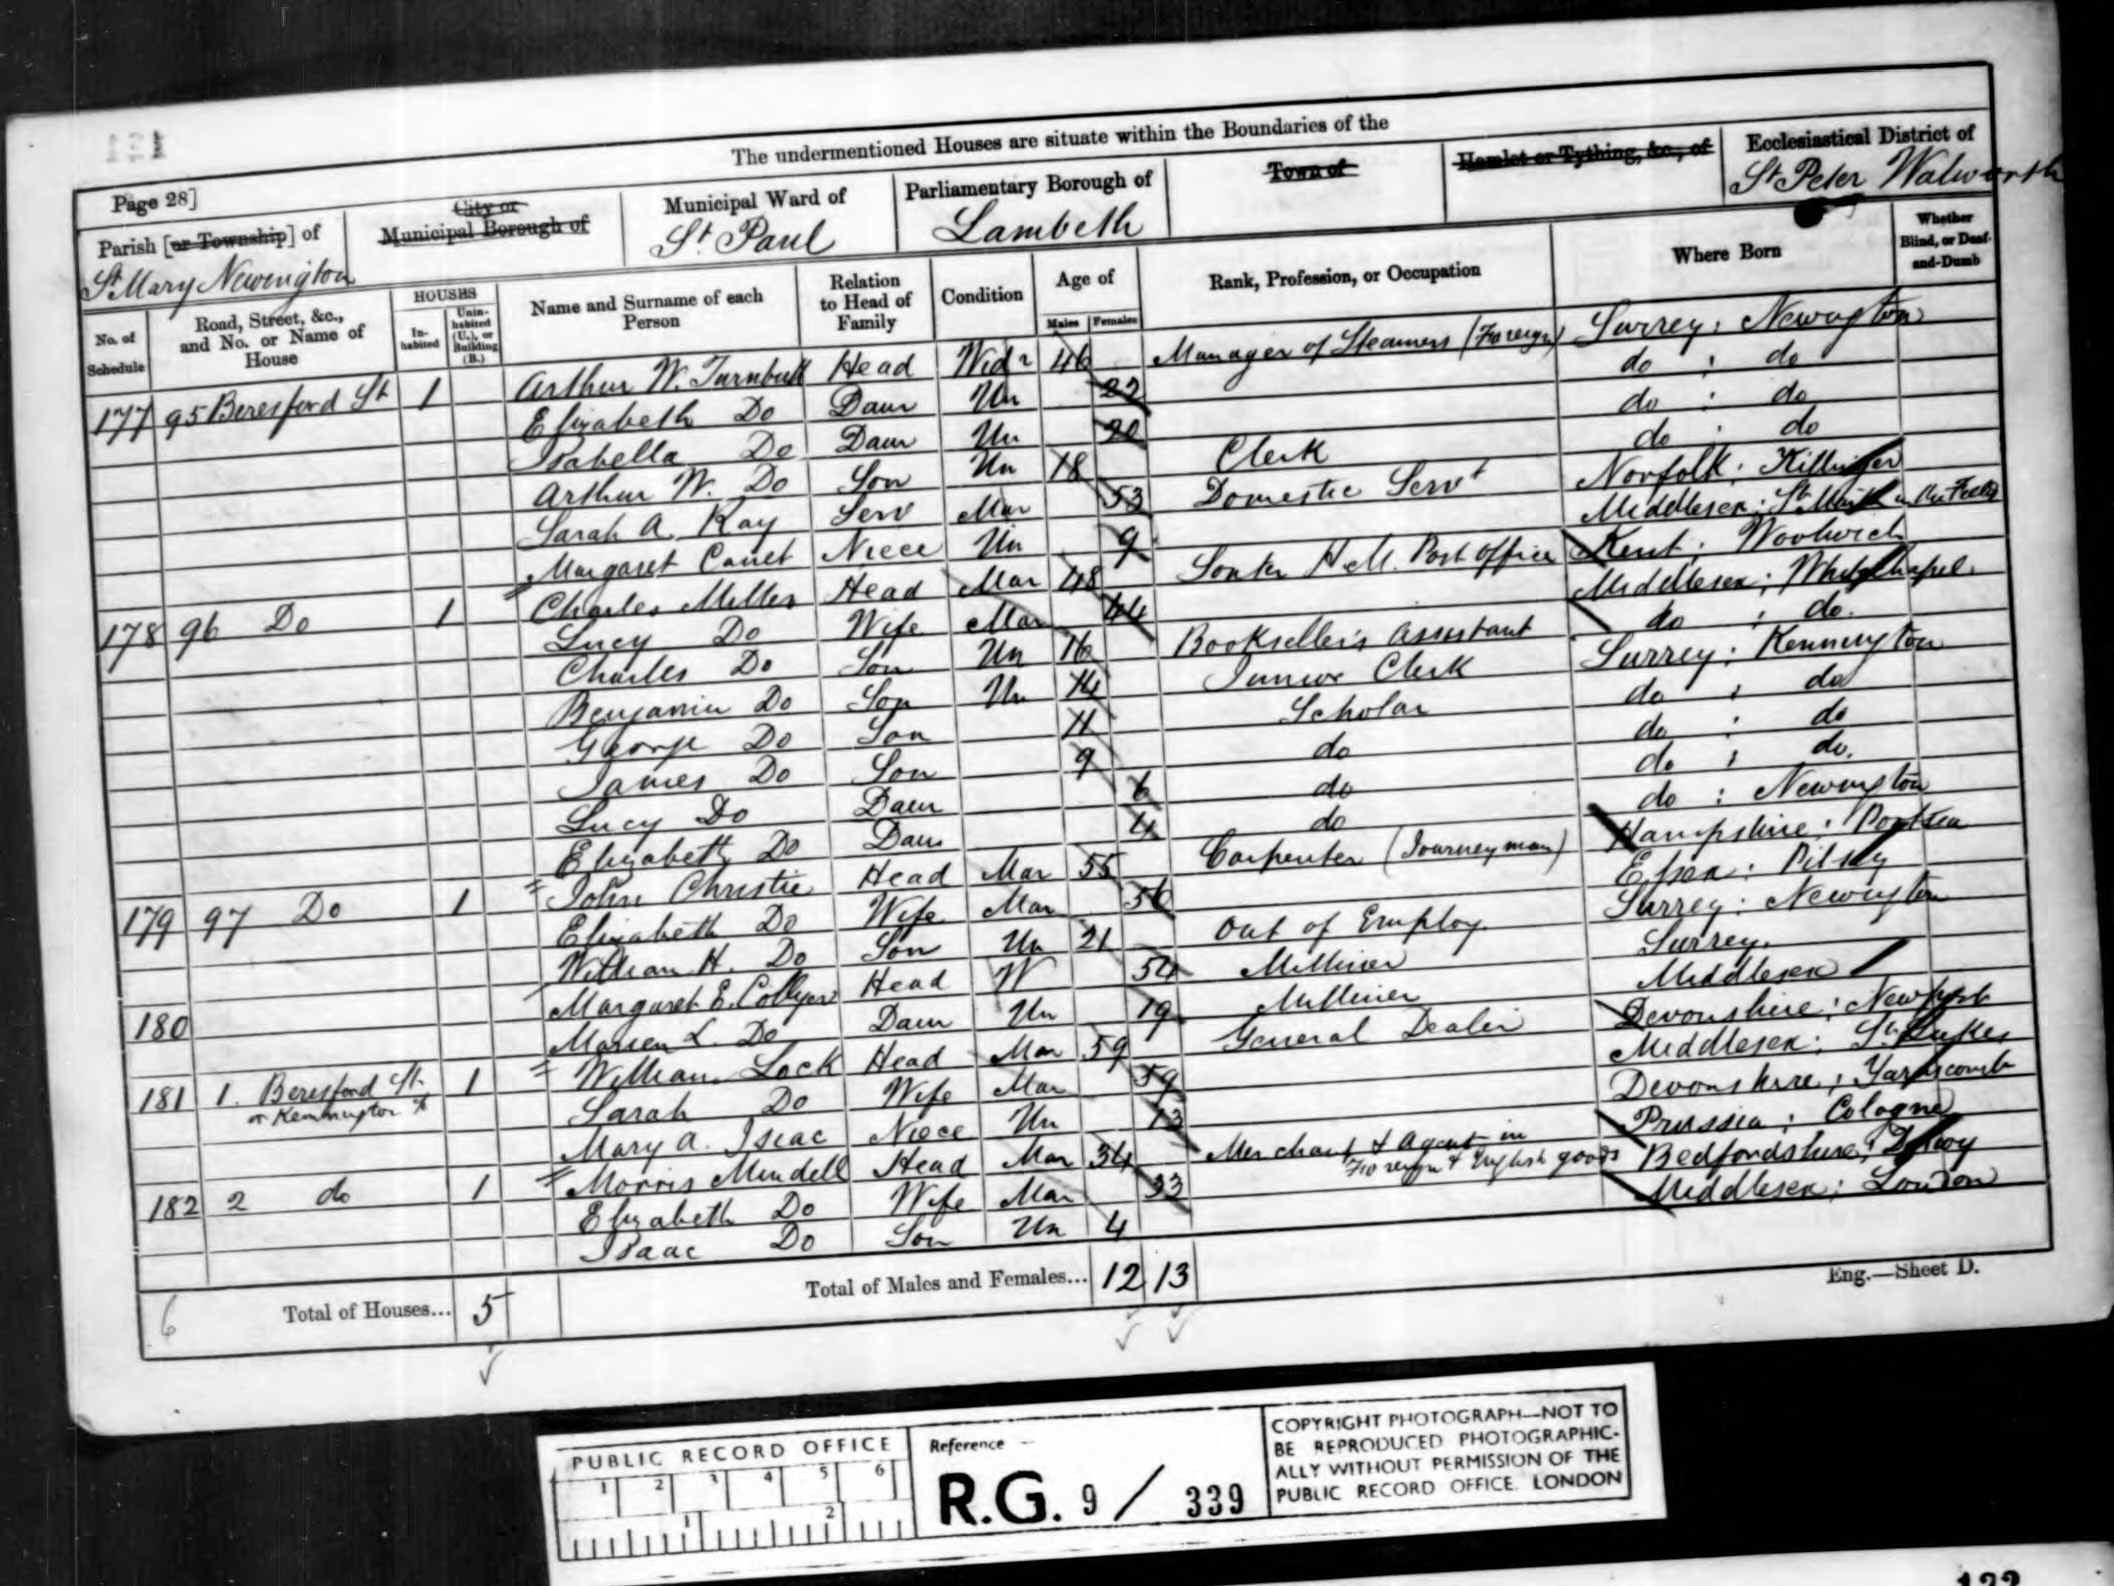 The undermentioned Houses are situate within the Boundaries of the
Page 28]
Parish [or Township] of
St Mary Newington
City or Municipal Borough of
Municipal Ward of
St Paul
Parliamentary Borough of
Lambeth
Town of
Hamlet or Tything, &c., of
Ecclesiastical District of
St Peter Walworth
No. of Schedule
Road, Street, &c., and No. or Name of House
HOUSES
In-habited
Unin-habited (U.), or Building (B.)
Name and Surname of each Person
Relation to Head of Family
Condition
Age of
Males Females
Rank, Profession, or Occupation
Where Born
Whether Blind, or Deaf-and-Dumb
177 95 Beresford St 1 Arthur W. Turnbull Head Widr 46 Manager of Steamers (Foreign) Surrey: Newington
Elizabeth Do Daur Un 22 do : do
Isabella Do Daur Un 20 do : do
Arthur W. Do Son Un 18 Clerk do : do
Sarah A. Ray Serv Mar 53 Domestic Servt Norfolk:
Margaret Niece Un 9 Middlesex: St in the Fields
178 96 Do 1 Charles Miller Head Mar 48 Sorter H.M. Post Office Kent: Woolwich
Lucy Do Wife Mar 44 Middlesex; Whitechapel.
Charles Do Son Un 16 Bookseller's Assistant do : do.
Benjamin Do Son Un 14 Junior Clerk Surrey: Kennington
George Do Son 11 Scholar do : do
James Do Son 9 do do : do
Lucy Do Daur 6 do do : do.
Elizabeth Do Daur 4 do do : Newington
179 97 Do 1 John Christie Head Mar 55 Carpenter (Journeyman) Hampshire: Portsea
Elizabeth Do Wife Mar 56 Essex: Pitsey
William H. Do Son Un 21 Out of Employ. Surrey: Newington
180 Margaret E. Collyer Head W 54 Milliner Surrey.
L. Do Daur Un 19 Milliner Middlesex
181 1. Beresford St. or Kennington 1 William Lock Head Mar 59 General Dealer Devonshire:
Sarah Do Wife Mar 59 Middlesex: St. Lukes
Mary A. Isaac Niece Un 13 Devonshire; Yarnscomb
182 2 do 1 Morris Mindell Head Mar 34 Merchant & Agent in Foreign & English goods Prussia; Cologne
Elizabeth Do Wife Mar 33 Bedfordshire;
Isaac Do Son Un 4 Middlesex: London
6
Total of Houses... 5
Total of Males and Females... 12 13
Eng.—Sheet D.
PUBLIC RECORD OFFICE
1 2 3 4 5 6
1 2
Reference
R.G. 9 / 339
COPYRIGHT PHOTOGRAPH—NOT TO
BE REPRODUCED PHOTOGRAPHIC-
ALLY WITHOUT PERMISSION OF THE
PUBLIC RECORD OFFICE. LONDON